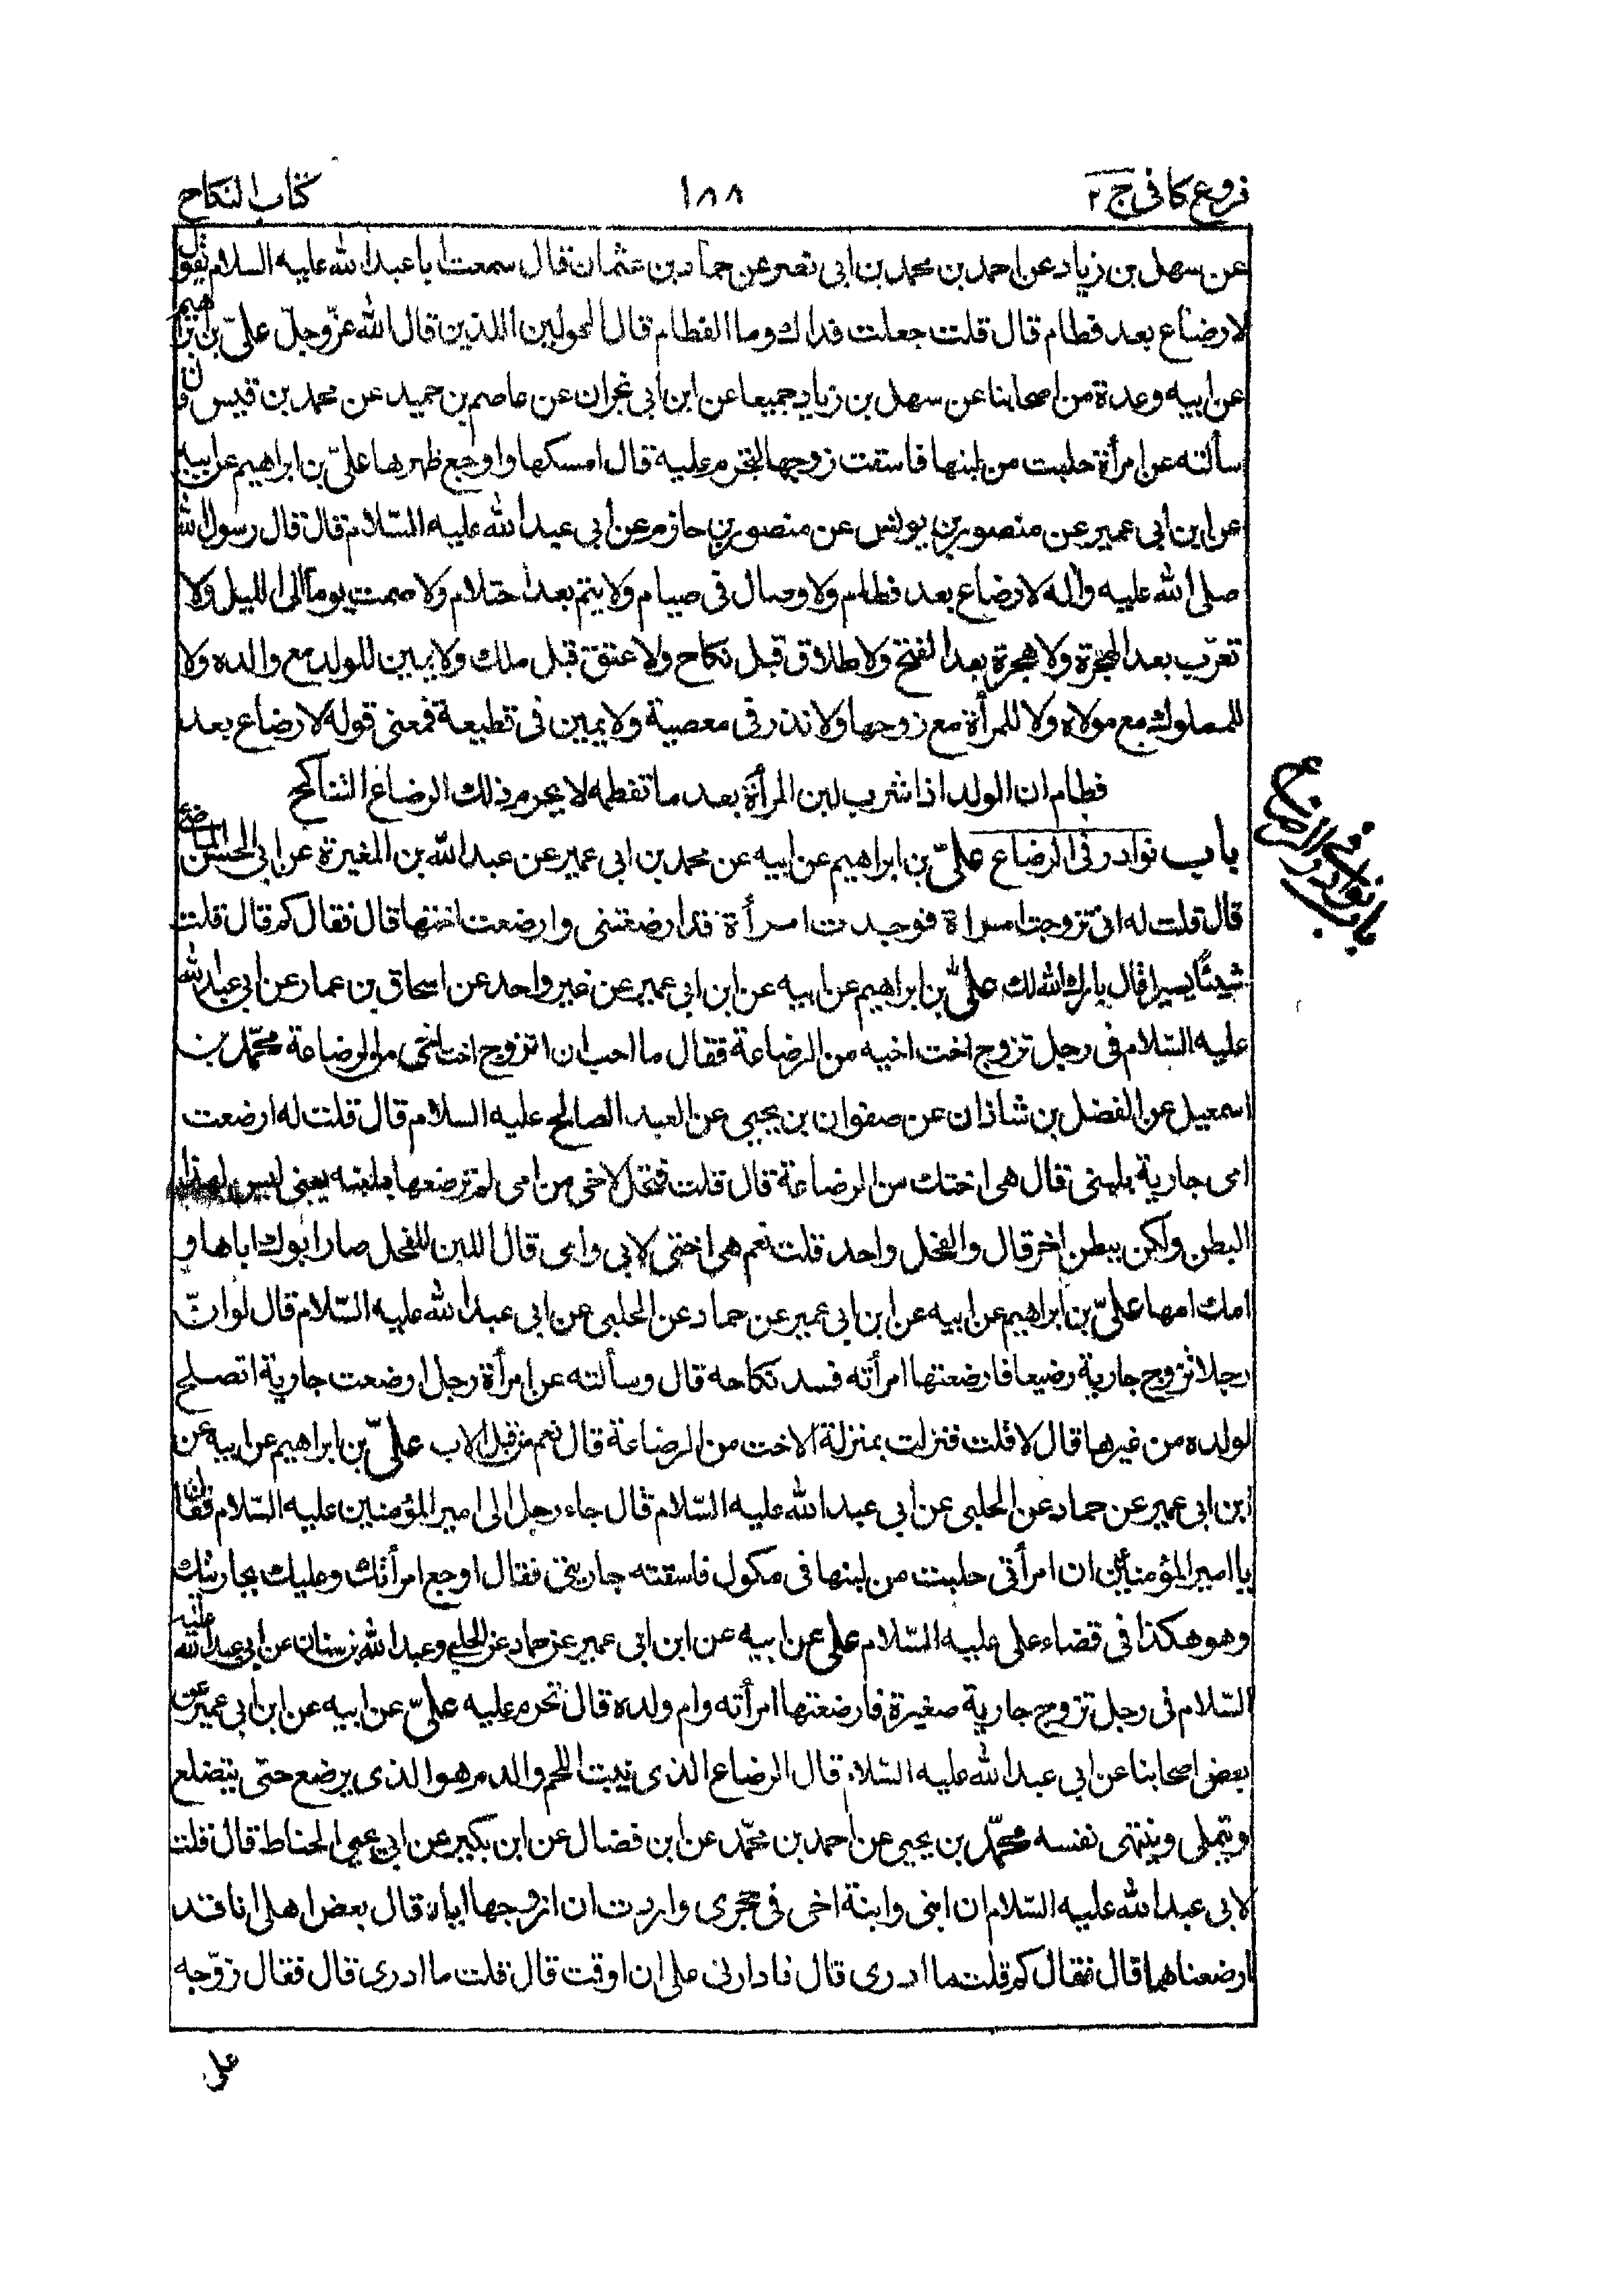 فروع كافى ج ٢
١٨٨
كتاب النكاح
عن سهل بن زياد عن احمد بن محمد بن ابى نصر عن حماد بن عثمان قال سمعت ابا عبد الله عليه السلام يقول
لا رضاع بعد فطام قال قلت جعلت فداك وما الفطام قال الحولين اللذين قال الله عزّ وجلّ علىّ بن ابراهيم
عن ابيه وعدة من اصحابنا عن سهل بن زياد جميعا عن ابن ابى نجران عن عاصم بن حميد عن محمد بن قيس قال
سألته عن امرأة حلبت من لبنها فاسقت زوجها لتحرم عليه قال امسكها واوجع ظهرها علىّ بن ابراهيم عن ابيه
عن ابن ابى عمير عن منصور بن يونس عن منصور بن حازم عن ابى عبد الله عليه السّلام قال قال رسول الله
صلى الله عليه واله لا رضاع بعد فطام ولا وصال فى صيام ولا يتم بعد احتلام ولا صمت يوما الى الليل ولا
تعرّب بعد الهجرة ولا هجرة بعد الفتح ولا طلاق قبل نكاح ولا عتق قبل ملك ولا يمين للولد مع والده ولا
للمملوك مع مولاه ولا للمرأة مع زوجها ولا نذر فى معصية ولا يمين فى قطيعة فمعنى قوله لا رضاع بعد
فطام ان الولد اذا شرب لبن المرأة بعد ما تفطمه لا يحرم ذلك الرضاع التناكح
باب نوادر فى الرضاع علىّ بن ابراهيم عن ابيه عن محمد بن ابى عمير عن عبد الله بن المغيرة عن ابى الحسن الماضى ع
باب نوادر فى الرضاع
قال قلت له انى تزوجت امراة فوجدت امرأة قد ارضعتنى وارضعت اختها قال فقال كم قال قلت
شيئا يسيرا قال بارك الله لك علىّ بن ابراهيم عن ابيه عن ابن ابى عمير عن غير واحد عن اسحاق بن عمار عن ابى عبد الله
عليه السّلام فى رجل تزوج اخت اخيه من الرضاعة فقال ما احب ان اتزوج اخت اخى من الرضاعة محمّد بن
اسمعيل عن الفضل بن شاذان عن صفوان بن يحيى عن العبد الصالح عليه السلام قال قلت له ارضعت
امى جارية بلبنى قال هى اختك من الرضاعة قال قلت فتحل لاخى من امى لم ترضعها بلبنه يعنى ليس بهذا
البطن ولكن ببطن اخر قال والفحل واحد قلت نعم هى اختى لابى وامى قال اللبن للفحل صار ابوك اباها و
امك امها علىّ بن ابراهيم عن ابيه عن ابن ابى عمير عن حماد عن الحلبى عن ابى عبد الله عليه السّلام قال لو انّ
رجلا تزوج جارية رضيعا فارضعتها امرأته فسد نكاحه قال وسألته عن امرأة رجل ارضعت جارية اتصلح
لولده من غيرها قال لا قلت فنزلت بمنزلة الاخت من الرضاعة قال نعم من قبل الاب علىّ بن ابراهيم عن ابيه عن
ابن ابى عمير عن حماد عن الحلبى عن ابى عبد الله عليه السّلام قال جاء رجل الى امير المؤمنين عليه السّلام فقال
يا امير المؤمنين ان امرأتى حلبت من لبنها فى مكول فاسقته جاريتى فقال اوجع امرأتك وعليك بجاريتك
وهو هكذا فى قضاء على عليه السّلام على عن ابيه عن ابن ابى عمير عن حماد عن الحلبى وعبد الله بن سنان عن ابى عبد الله عليه
السّلام فى رجل تزوج جارية صغيرة فارضعتها امرأته وام ولده قال تحرم عليه علىّ عن ابيه عن ابن ابى عمير عن
بعض اصحابنا عن ابى عبد الله عليه السّلام قال الرضاع الذى ينبت اللحم والدم هو الذى يرضع حتى يتضلع
ويتملى وينتهى نفسه محمّد بن يحيى عن احمد بن محمّد عن ابن فضال عن ابن بكير عن ابى يحيى الحناط قال قلت
لابى عبد الله عليه السّلام ان ابنى وابنة اخى فى حجرى واردت ان ازوجها اياه قال بعض اهلى انا قد
ارضعناهما قال فقال كم قلت ما ادرى قال فادارنى على ان اوقت قال قلت ما ادرى قال فقال زوّجه
على